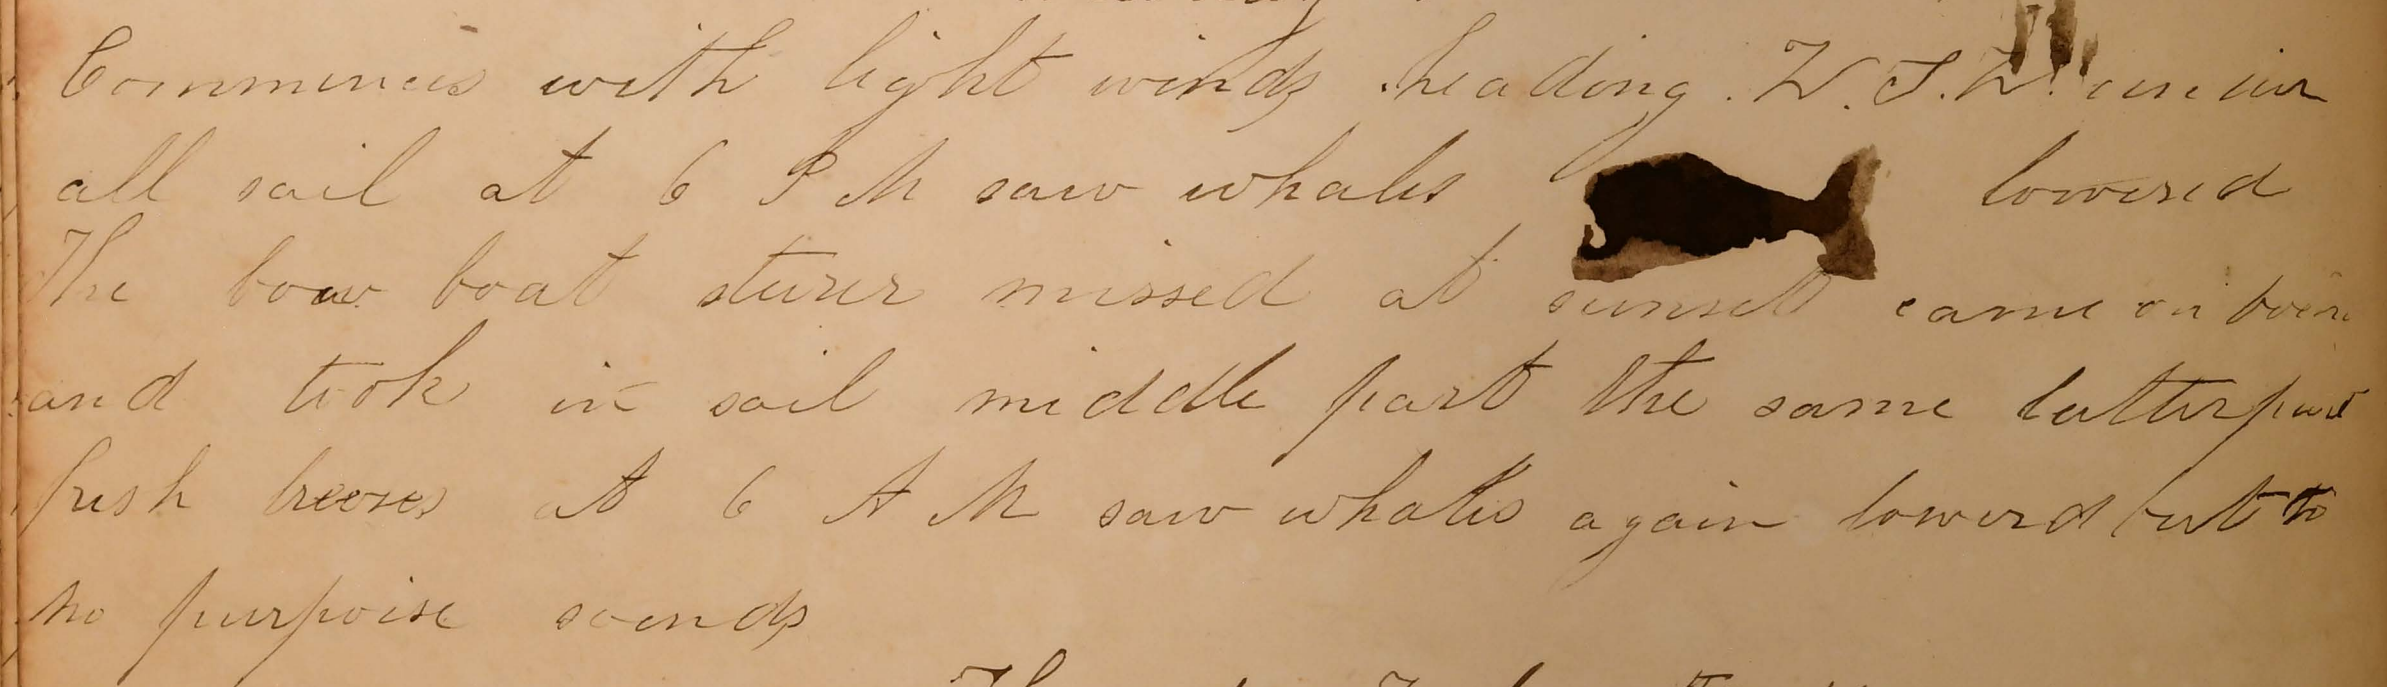 Commences with light winds heading W.S.W. under
all sail at 6 P M saw whales lowered
The bow boat sturer missed at sunset came on bord
and took in sail middle part the same latter part
fresh breeses at 6 A M saw whales again lowerd but to
no purpoise soends